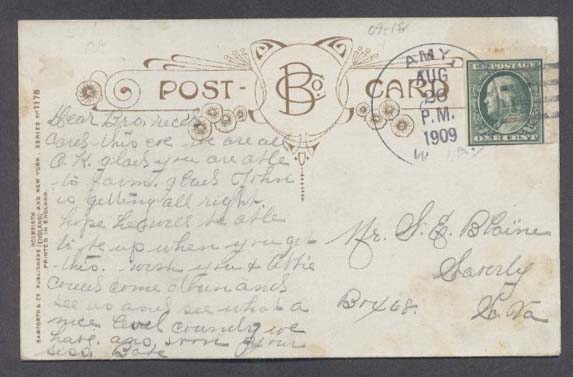 POST- B Co. CARD
AMY,
AUG
20
P.M.
1909
W. VA.
U.S. POSTAGE
ONE CENT
BAMFORTH & CO. PUBLISHERS
HOLMFIRTH (ENGLAND) AND NEW YORK.
PRINTED IN ENGLAND.
SERIES No 1178
Dear Bro, recd
card this eve. we are all
O.K. glad you are able
to farm. glad John
is getting all right.
hope he will be able
to be up when you get
this. wish you &
could come down and
see us and see what a
nice level country we
have. ans soon your
Mr. S. E. Blaine
Box 68.